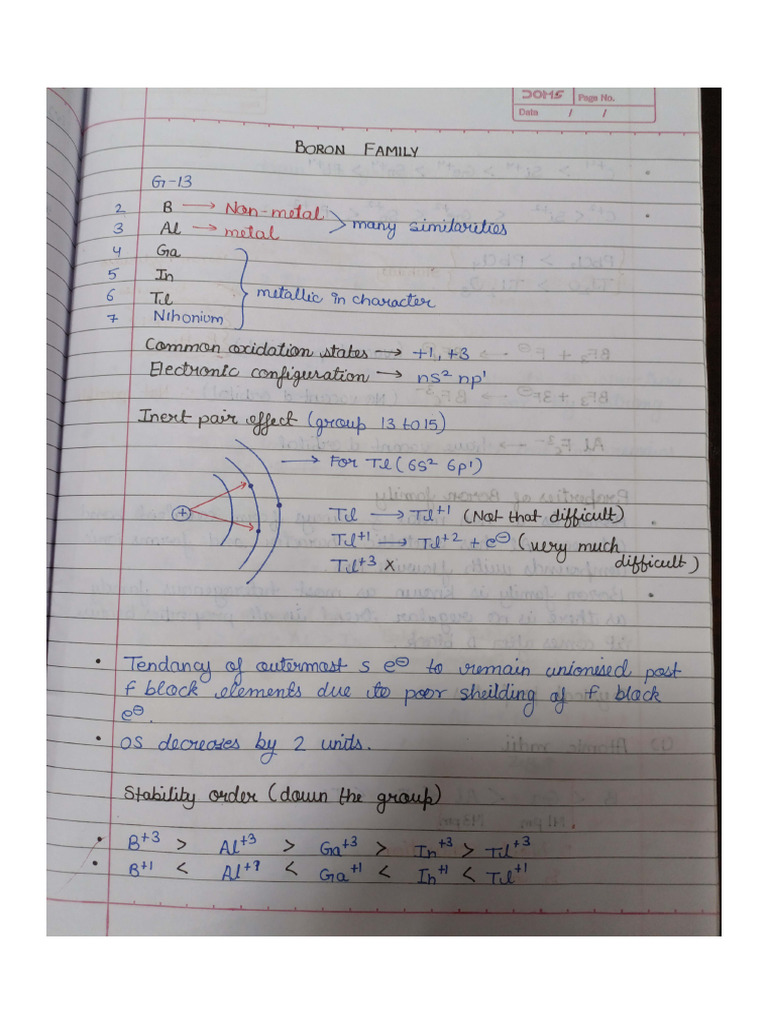 DOMS Page No.
Data / /
BORON FAMILY
G-13
2 B → Non-metal
3 Al → metal
many similarities
4 Ga
5 In
6 Tl
7 Nihonium
metallic in character
Common oxidation states → +1, +3
Electronic configuration → ns² np¹
Inert pair effect (group 13 to 15)
→ For Tl (6s² 6p¹)
+
Tl → Tl⁺¹ (Not that difficult)
Tl⁺¹ → Tl⁺² + e⊖ (very much difficult)
Tl⁺³ ×
• Tendancy of outermost s e⊖ to remain unionised post
f block elements due to poor sheilding of f block
e⊖.
• OS decreases by 2 units.
Stability order (down the group)
• B⁺³ > Al⁺³ > Ga⁺³ > In⁺³ > Tl⁺³
• B⁺¹ < Al⁺¹ < Ga⁺¹ < In⁺¹ < Tl⁺¹